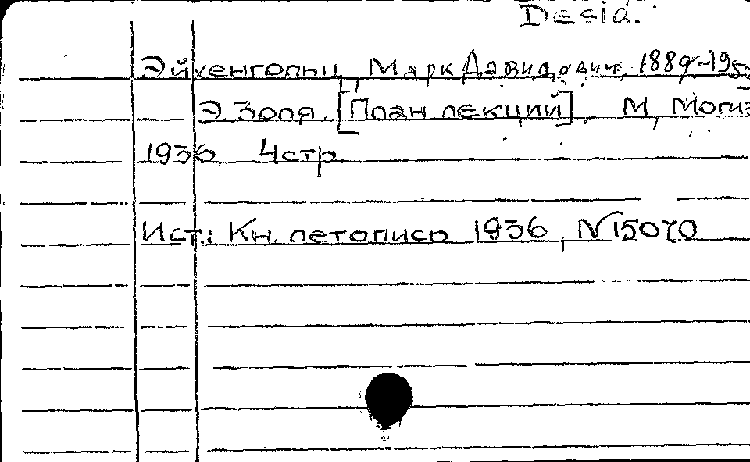 Desid.
Эйхенгольц, Марк Давидович, 1889-195
Э. Золя. [План лекций]. М, Могиз
1936 4стр.
Ист.: Кн. летопись 1936, N15070